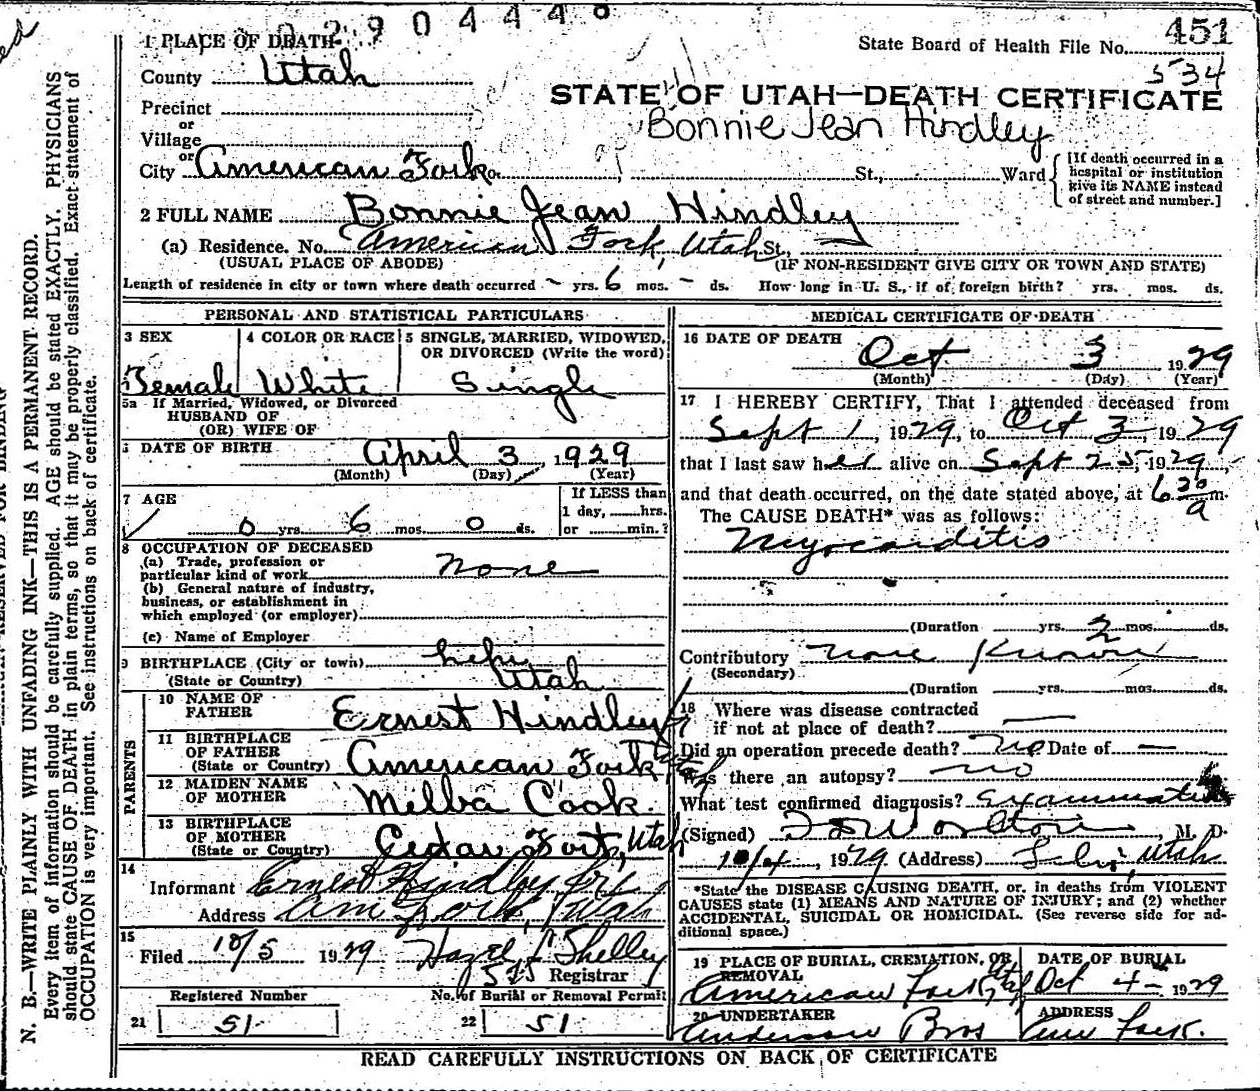 0290444
451
State Board of Health File No.
534
1 PLACE OF DEATH
County Utah
Precinct
or
Village
or
City American Fork No. St., Ward
[If death occurred in a hospital or institution give its NAME instead of street and number.]
STATE OF UTAH—DEATH CERTIFICATE
Bonnie Jean Hindley
2 FULL NAME Bonnie Jean Hindley
(a) Residence. No. American Fork, Utah St.,
(USUAL PLACE OF ABODE) (IF NON-RESIDENT GIVE CITY OR TOWN AND STATE)
Length of residence in city or town where death occurred - yrs. 6 mos. - ds. How long in U. S., if of foreign birth? yrs. mos. ds.
PERSONAL AND STATISTICAL PARTICULARS
3 SEX
Female
4 COLOR OR RACE
White
5 SINGLE, MARRIED, WIDOWED, OR DIVORCED (Write the word)
Single
5a If Married, Widowed, or Divorced
HUSBAND OF
(OR) WIFE OF
6 DATE OF BIRTH April 3 1929
(Month) (Day) (Year)
7 AGE
0 yrs. 6 mos. 0 ds.
If LESS than
1 day, hrs.
or min.?
8 OCCUPATION OF DECEASED
(a) Trade, profession or
particular kind of work None
(b) General nature of industry,
business, or establishment in
which employed (or employer)
(c) Name of Employer
9 BIRTHPLACE (City or town) Lehi
(State or Country) Utah
PARENTS
10 NAME OF
FATHER Ernest Hindley
11 BIRTHPLACE
OF FATHER
(State or Country) American Fork Utah
12 MAIDEN NAME
OF MOTHER Melba Cook.
13 BIRTHPLACE
OF MOTHER
(State or Country) Cedar Fort, Utah
14
Informant Ernest Hindley
Address Am Fork, Utah
15
Filed 10/5 1929 Hazel L Shelley
Registrar
Registered Number
21 51
No. of Burial or Removal Permit
22 51
MEDICAL CERTIFICATE OF DEATH
16 DATE OF DEATH
Oct 3 1929
(Month) (Day) (Year)
17 I HEREBY CERTIFY, That I attended deceased from
Sept 1, 1929, to Oct 3, 1929
that I last saw her alive on Sept 25, 1929,
and that death occurred, on the date stated above, at 6 30 a m.
The CAUSE DEATH* was as follows:
Myocarditis
(Duration yrs. 2 mos. ds.
Contributory None Known
(Secondary)
(Duration yrs. mos. ds.
18 Where was disease contracted
if not at place of death?
Did an operation precede death? No Date of —
Was there an autopsy? no
What test confirmed diagnosis? Examination
(Signed) M. D.
10/4, 1929 (Address) Lehi, Utah
*State the DISEASE CAUSING DEATH, or, in deaths from VIOLENT
CAUSES state (1) MEANS AND NATURE OF INJURY; and (2) whether
ACCIDENTAL, SUICIDAL OR HOMICIDAL. (See reverse side for ad-
ditional space.)
19 PLACE OF BURIAL, CREMATION, OR
REMOVAL
American Fork, Utah
DATE OF BURIAL
Oct 4 - 1929
20 UNDERTAKER
Anderson Bros
ADDRESS
Am Fork.
READ CAREFULLY INSTRUCTIONS ON BACK OF CERTIFICATE
N. B.—WRITE PLAINLY WITH UNFADING INK—THIS IS A PERMANENT RECORD.
Every item of information should be carefully supplied. AGE should be stated EXACTLY. PHYSICIANS
should state CAUSE OF DEATH in plain terms, so that it may be properly classified. Exact statement of
OCCUPATION is very important. See instructions on back of certificate.
RESERVED FOR BINDING